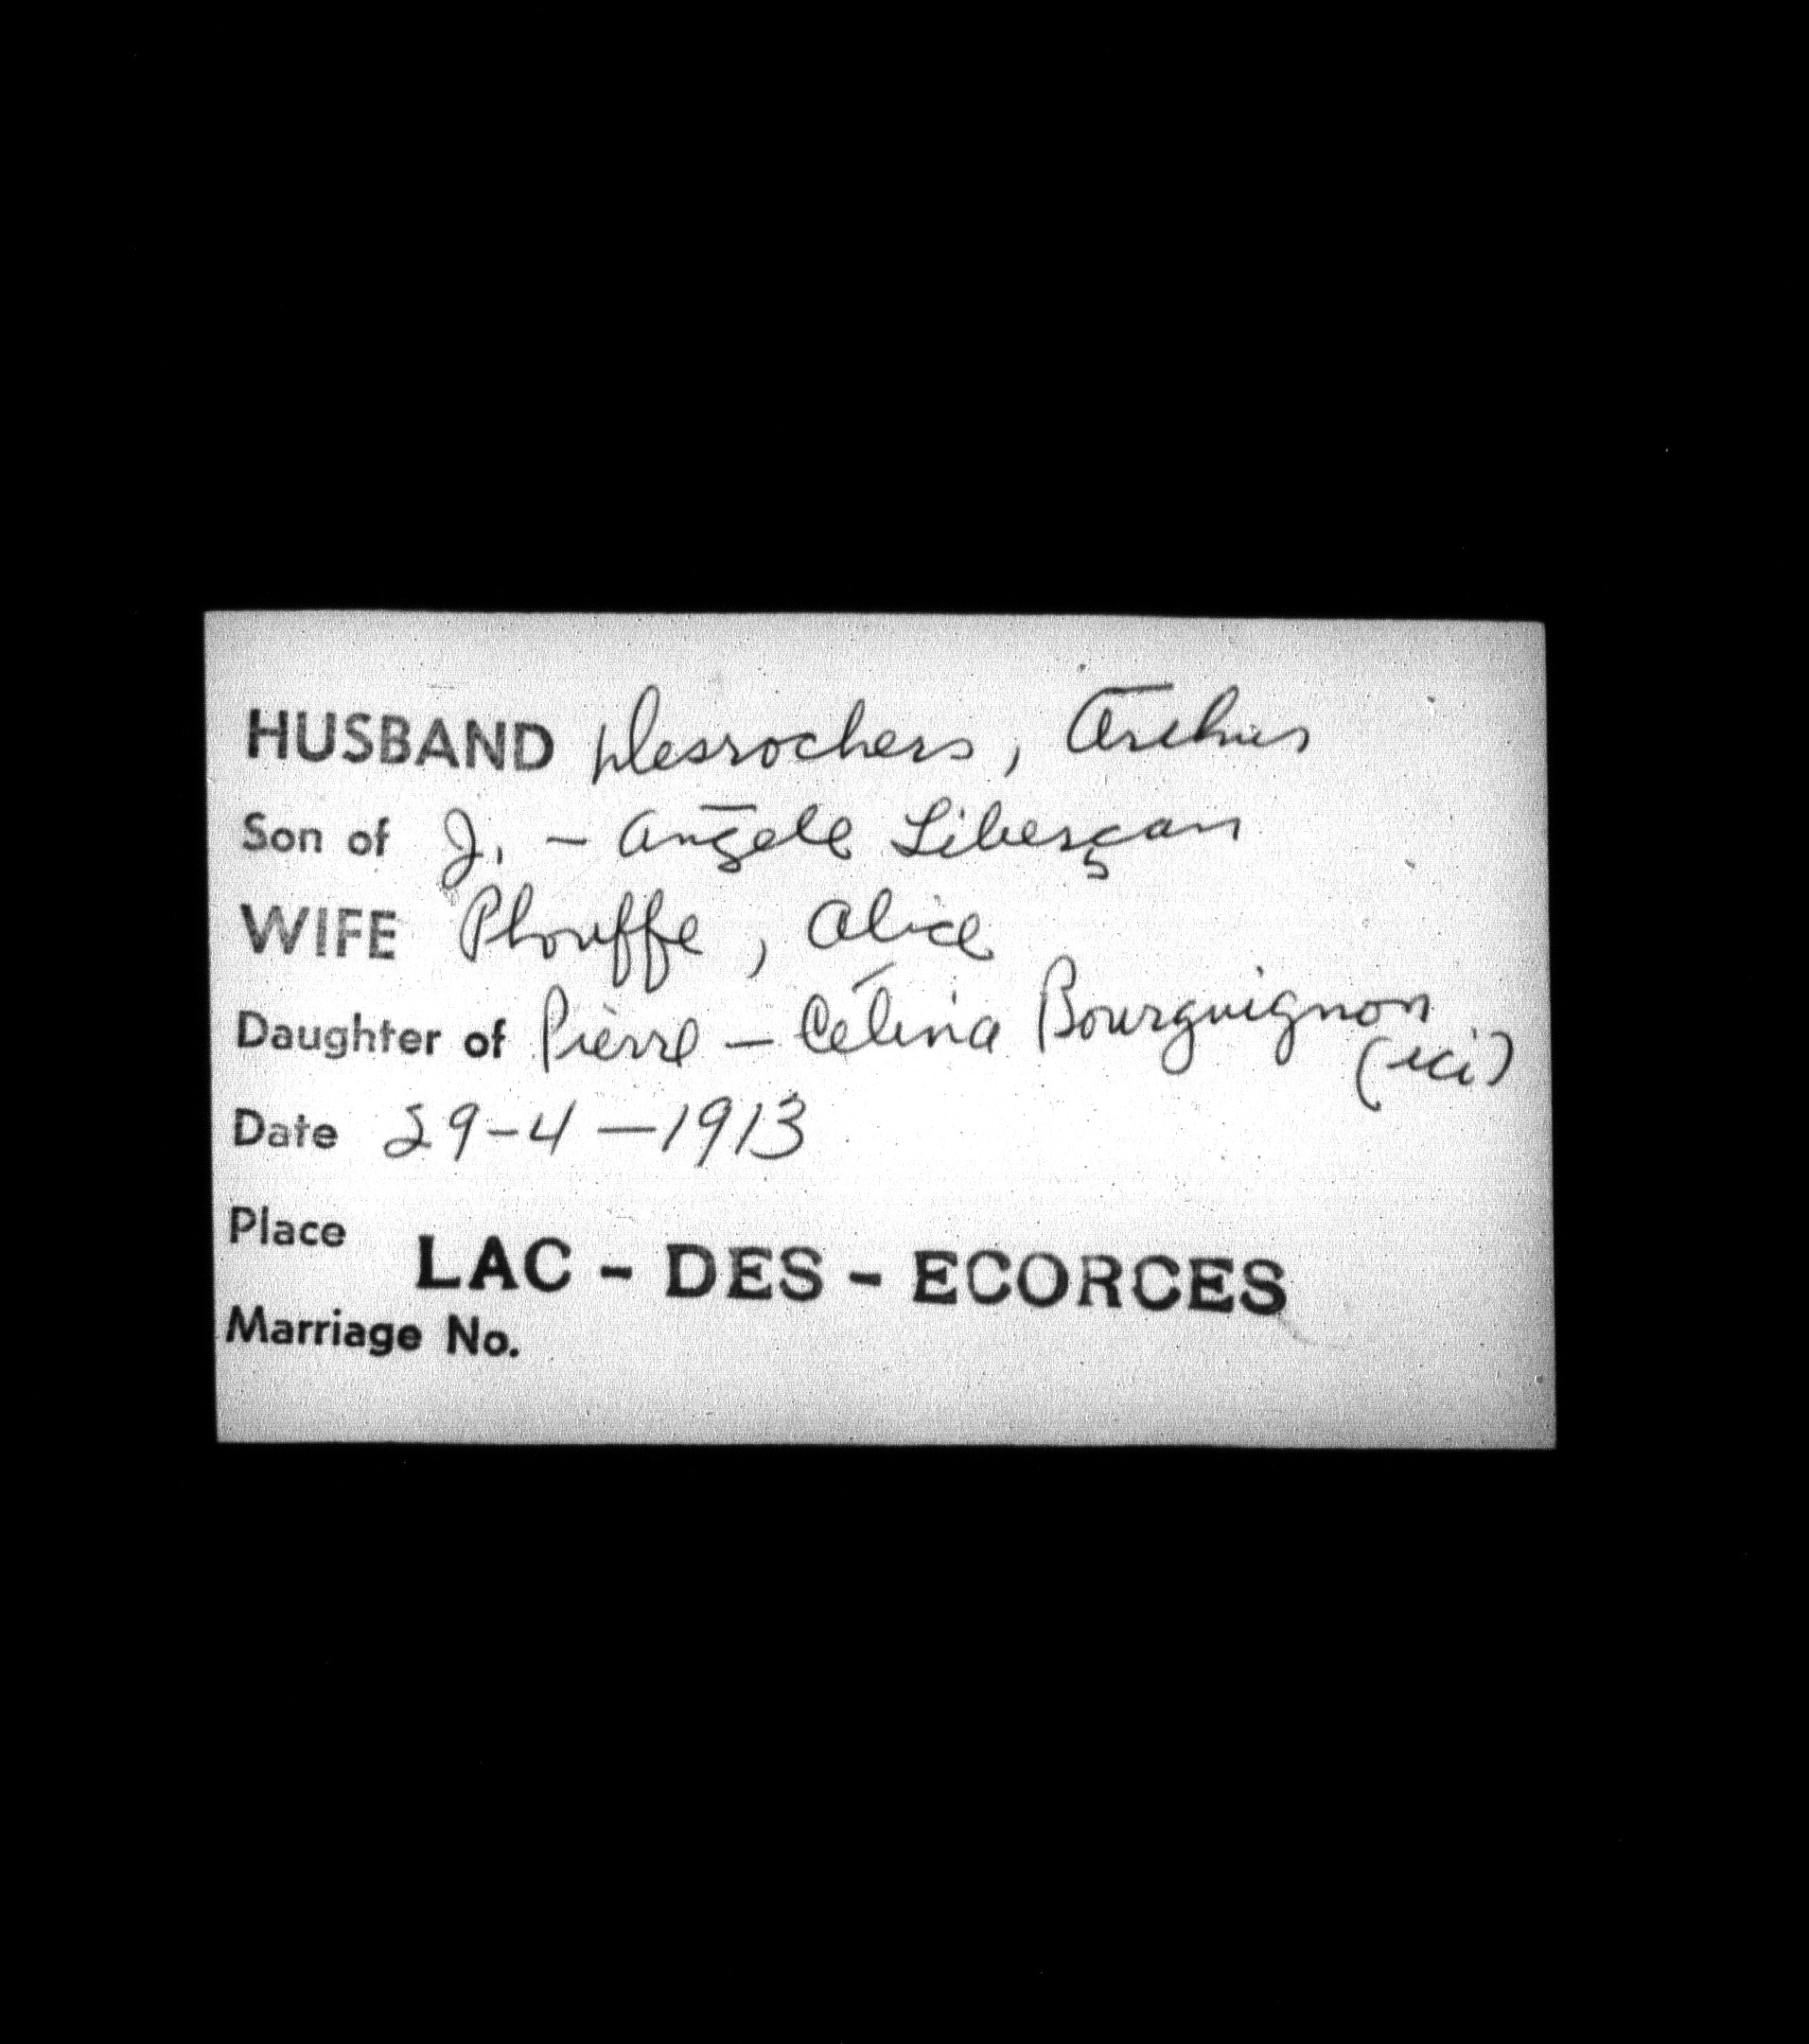 HUSBAND Desrochers, Arthur
Son of J. - Angèle Liberçan
WIFE Plouffe, Alice
Daughter of Pierre - Célina Bourguignon
(ici)
Date 29-4-1913
Place
LAC - DES - ECORCES
Marriage No.